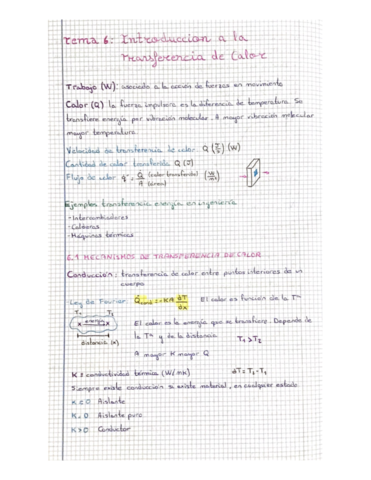 Tema 6: Introduccion a la
Transferencia de Calor
Trabajo (W): asociado a la acción de fuerzas en movimiento
Calor (Q) la fuerza impulsora es la diferencia de temperatura. Se
transfiere energía por vibración molecular. A mayor vibración molecular
mayor temperatura.
Velocidad de transferencia de calor Q̇ (J/s) (W)
Cantidad de calor transferido Q (J)
Flujo de calor q̇ = Q̇/A (calor transferido)/(área) (W/m²)
Ejemplos transferencia energía en ingeniería
-Intercambiadores
-Calderas
-Máquinas térmicas
6.1 MECANISMOS DE TRANSFERENCIA DE CALOR
Conducción: transferencia de calor entre puntos interiores de un
cuerpo
-Ley de Fourier Q̇cond = -KA dT/dx El calor es función de la Tª
T₁ T₂
x energía x
distancia (x)
El calor es la energía que se transfiere. Depende de
la Tª y de la distancia T₁ > T₂
A mayor K mayor Q
K = conductividad térmica (W/mK) dT = T₂ - T₁
Siempre existe conducción si existe material, en cualquier estado
Aislante
K = 0 Aislante puro
K > 0 Conductor